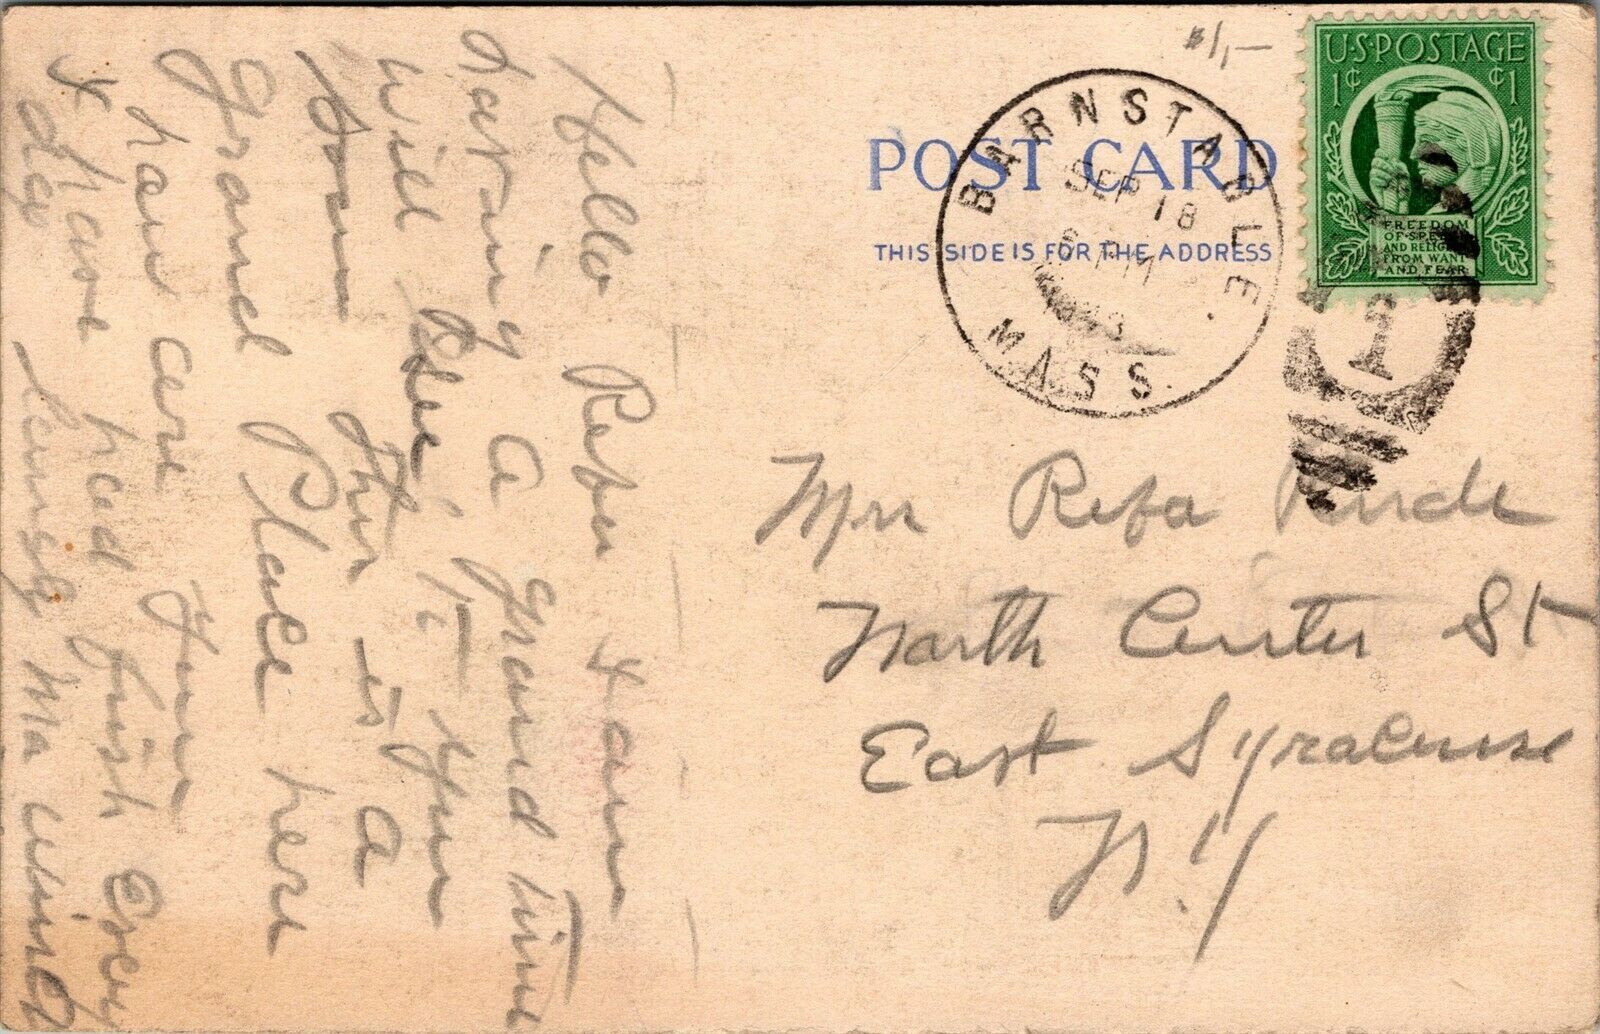 Hello Reba I am
having a grand time
will see to you
soon this is a
Grand Place here
have fun
& have fried fish Every
day
$1,—
POST CARD
THIS SIDE IS FOR THE ADDRESS
BARNSTABLE
SEP 18
6 PM
1943
MASS.
U·S·POSTAGE
1¢ ¢1
FREEDOM
OF SPEECH
AND RELIGION
FROM WANT
AND FEAR
1
Mrs Reba
North Center St
East Syracuse
N.Y